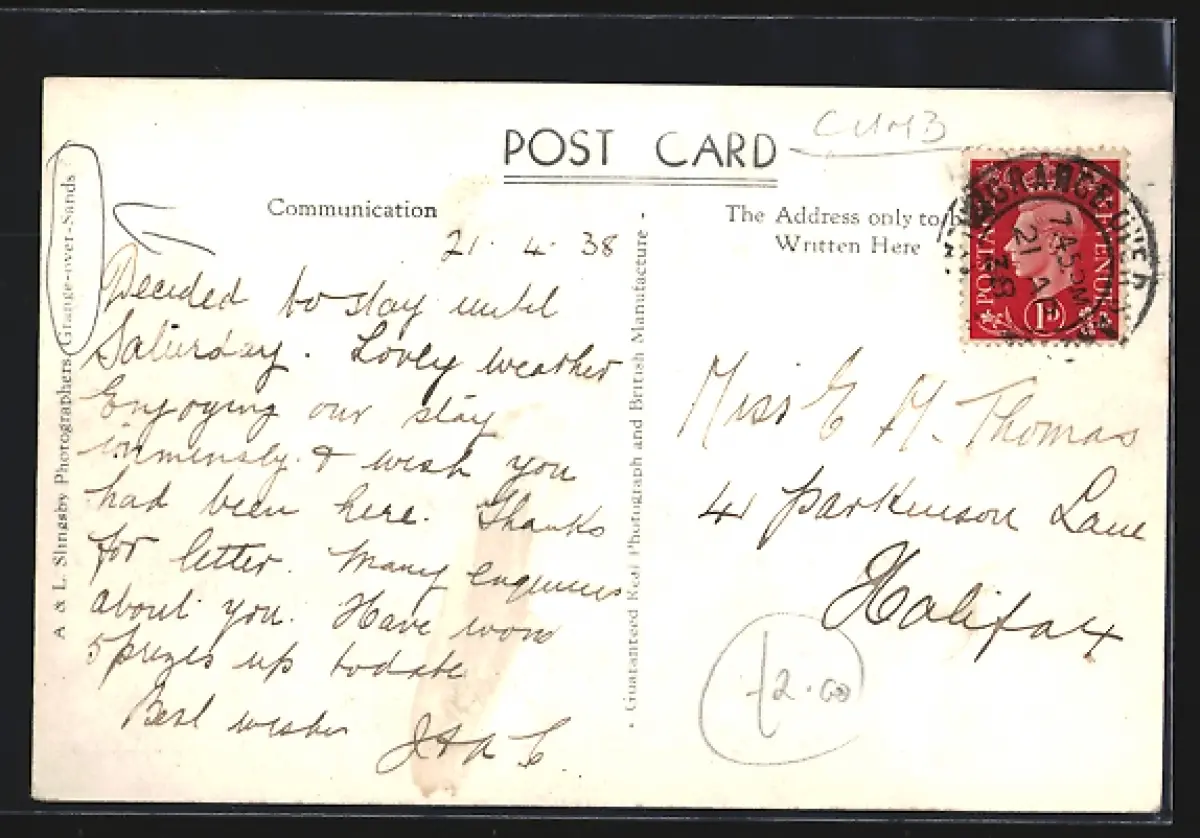 POST CARD
CUMB
Communication
The Address only to b
Written Here
21. 4. 38
Decided to stay until
Saturday. Lovely weather
Enjoying our stay
immensly. & wish you
had been here. Thanks
for letter. Many enquiries
about you. Have won
5 prizes up todate
Best wishes
J & A C.
Miss E H. Thomas
41 Parkinson Lane
Halifax
£2.00
A & L. Slingsby Photographers, Grange-over-Sands
· Guaranteed Real Photograph and British Manufacture ·
POSTAGE REVENUE
1D
GRANGE-OVER
745PM
21 AP
38